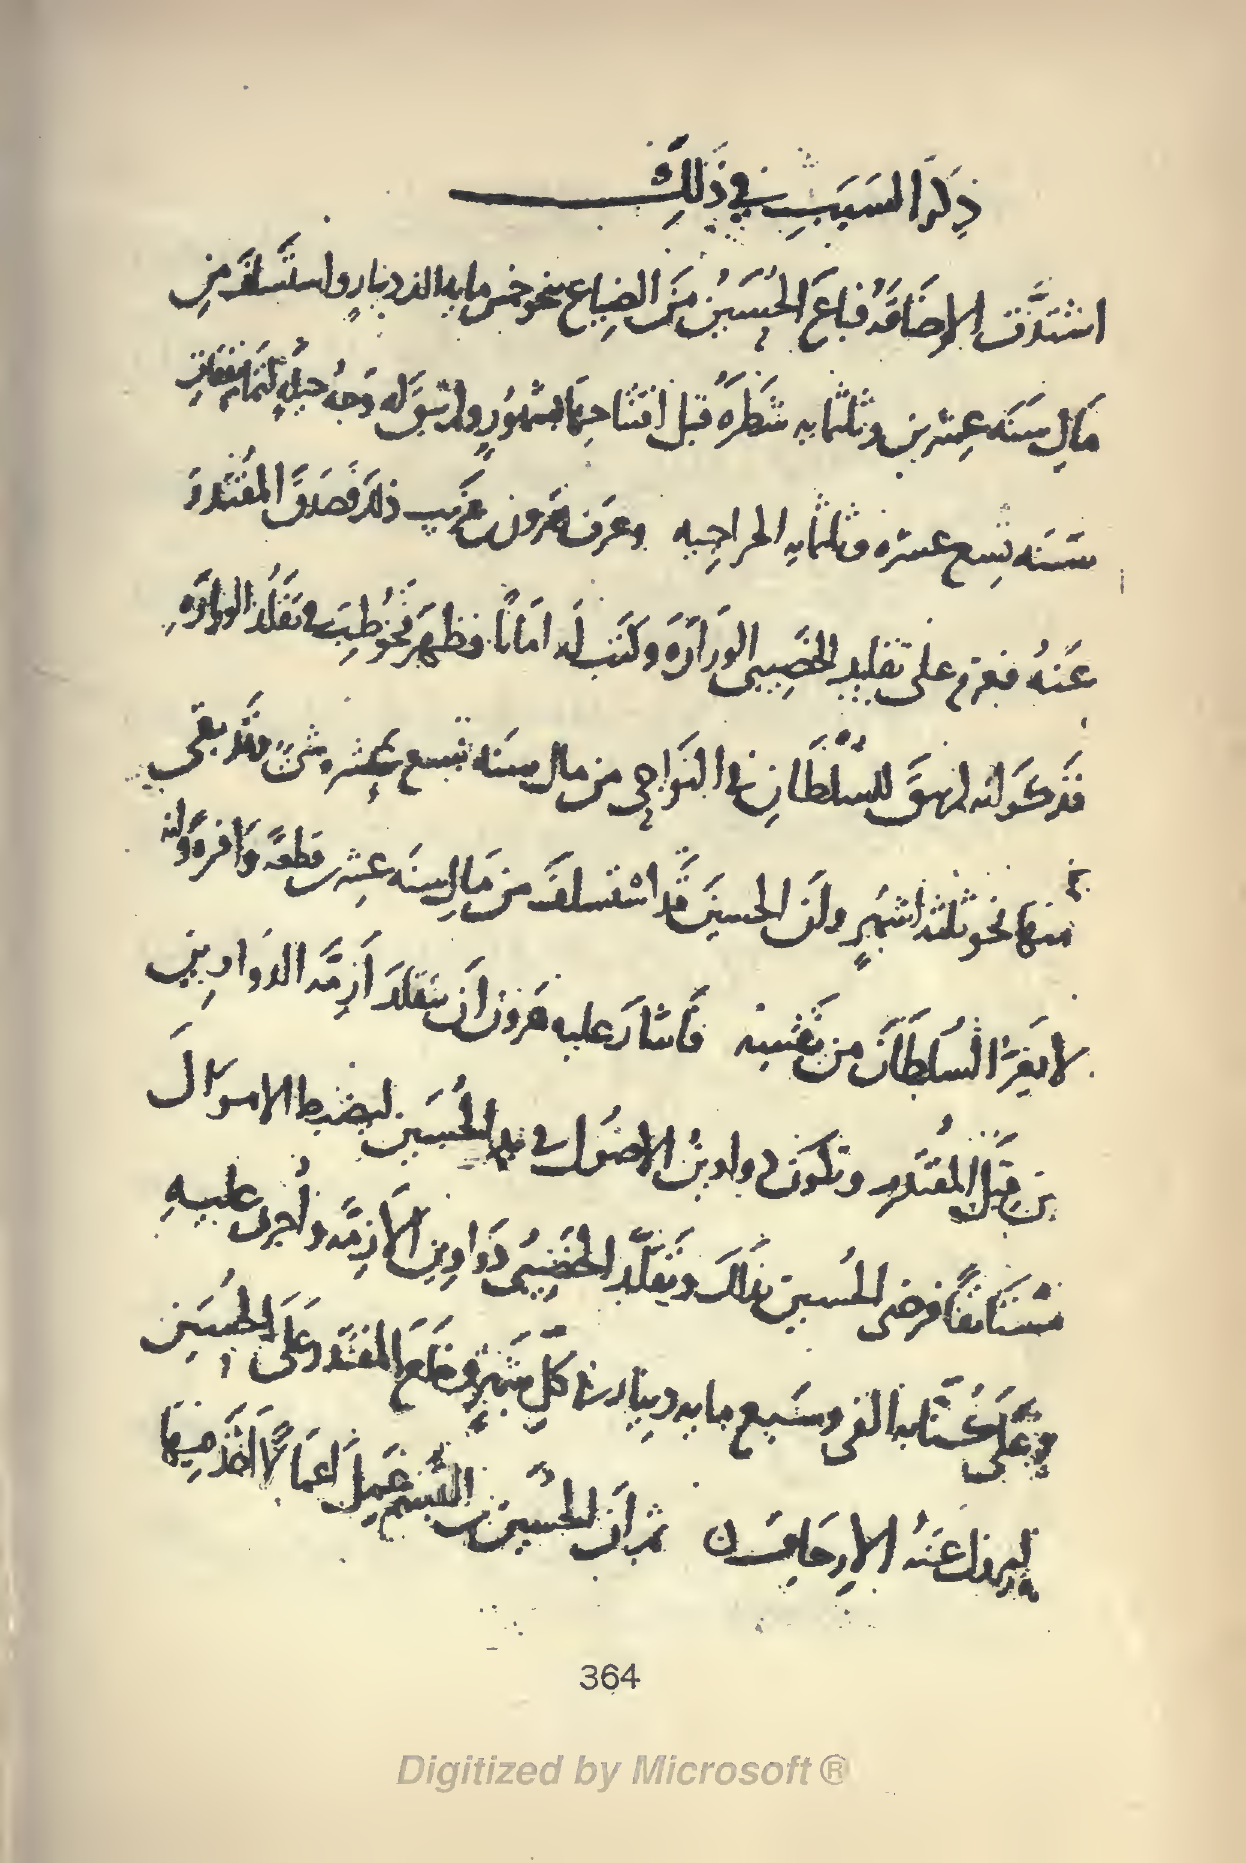 ذكر السبب في ذلك
اشتدّت الإضاقة فباع الحسين من الضياع بنحو خمس مايه الف دينار واستسلف من
مال سنه عشرين وثلثمايه شطره قبل افتتاحها بشهور ولم يبق له وجه حيله لتمام نفقات
سنه تسع عشره وثلثمايه الخراجيه وعرف هرون بن غريب ذلك فصدق المقتدر
عنه فعزم على تقليد الخصيبى الوزاره وكتب له امانًا فظهر فخوطب في تقلد الوزاره
فذكر انه لم يبق للسلطان في النواحى من مال سنه تسع عشره شئ وقد بقى
منها نحو ثلثه اشهر وان الحسين قد استسلف من مال سنه عشرين قطعه وافره وانه
لا يغر السلطان من نفسه فاشار عليه هرون ان يتقلد أزمّه الدواوين
من قبل المقتدر وتكون دواوين الاصول في يد الحسين ليضبط الاموال
مستانفًا فرضى الحسين بذلك وتقلّد الخصيبى دواوين الازمّه واجرى عليه
وعلى كتّابه الفى وسبع مايه دينار في كلّ شهر وخلع المقتدر على الحسين
ليزول عنه الارجاف ثم ان الحسين بن القسم عمل اعمالًا اخذ فيها
364
Digitized by Microsoft ®